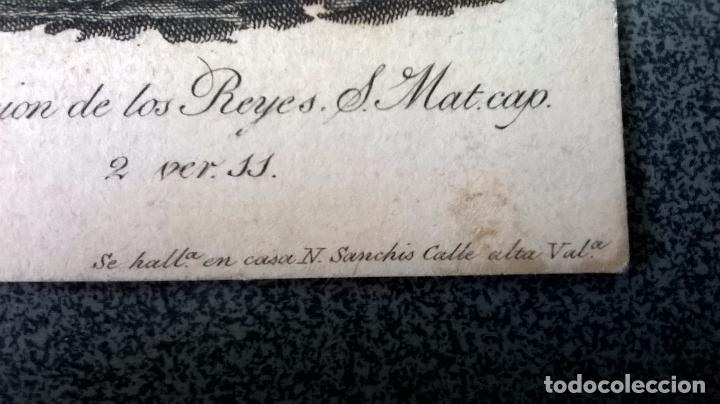 ion de los Reyes. S. Mat. cap.
2 ver. 11.
Se hall.ª en casa N. Sanchis Calle alta Val.ª
todocoleccion